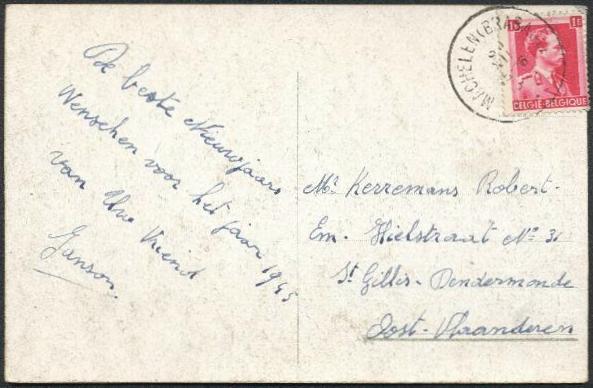 De beste Nieuwjaars
Wenschen voor het jaar 1945
van Uw Vriend
Janson.
MACHELEN (BRAB.)
1F
BELGIE-BELGIQUE
Mr Kerremans Robert-
Em. Hielstraat No 31
St Gillis-Dendermonde
Oost-Vlaanderen